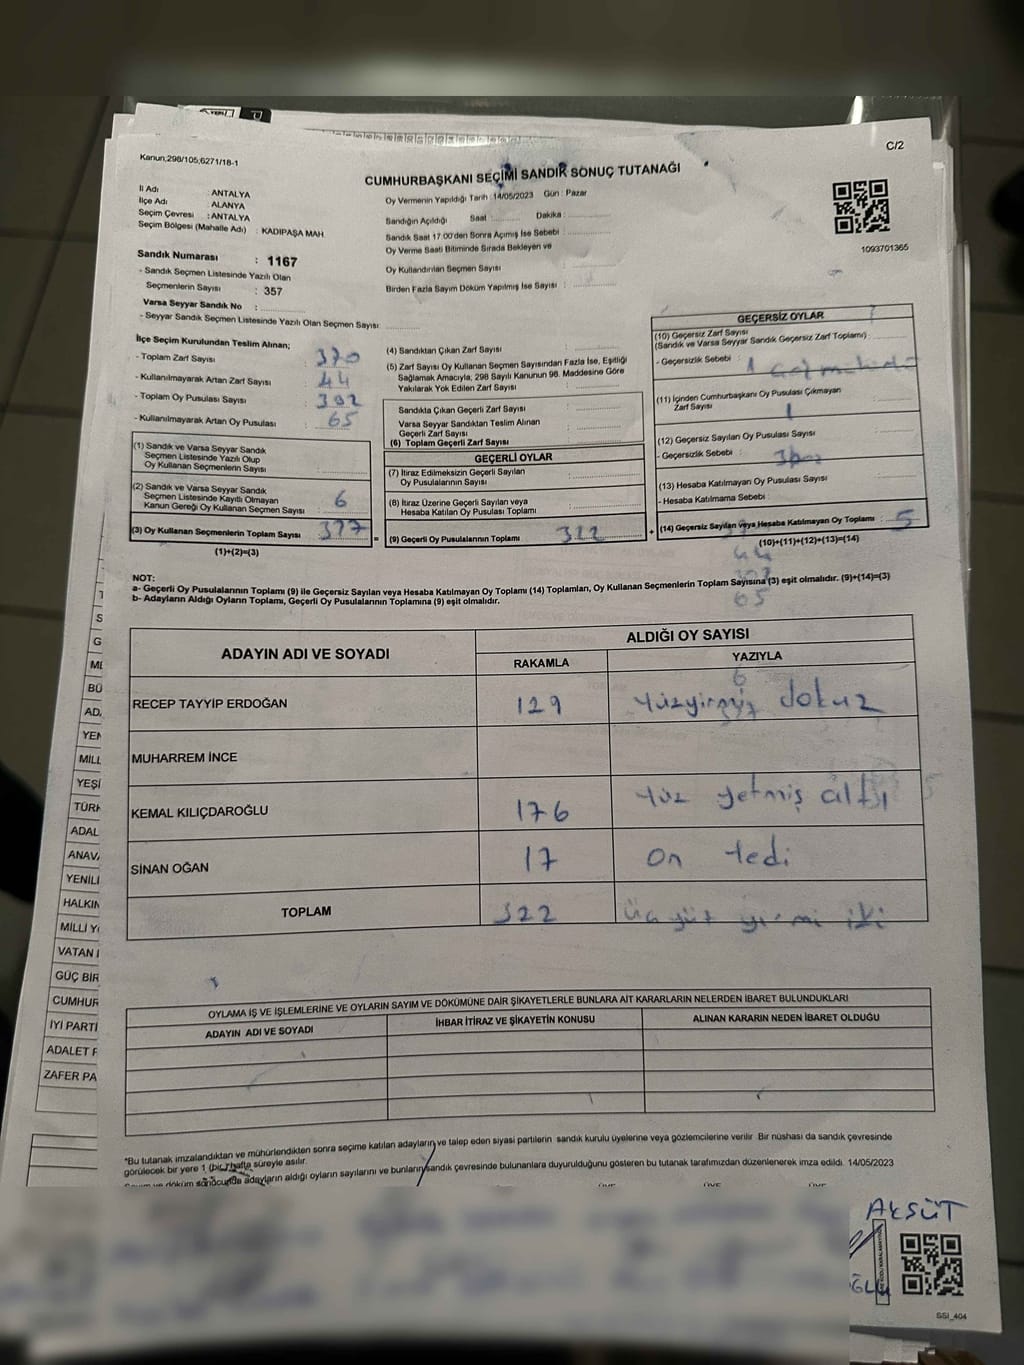 C/2
Kanun;298/105;6271/18-1
CUMHURBAŞKANI SEÇİMİ SANDIK SONUÇ TUTANAĞI
İl Adı : ANTALYA
İlçe Adı : ALANYA
Seçim Çevresi : ANTALYA
Seçim Bölgesi (Mahalle Adı) : KADIPAŞA MAH.
Oy Vermenin Yapıldığı Tarih : 14/05/2023 Gün : Pazar
Sandığın Açıldığı Saat : Dakika :
Sandık Saat 17:00'den Sonra Açımış İse Sebebi :
Oy Verme Saati Bitiminde Sırada Bekleyen ve
Oy Kullandırılan Seçmen Sayısı :
Birden Fazla Sayım Döküm Yapılmış İse Sayısı :
1093701365
Sandık Numarası : 1167
- Sandık Seçmen Listesinde Yazılı Olan
Seçmenlerin Sayısı : 357
Varsa Seyyar Sandık No :
- Seyyar Sandık Seçmen Listesinde Yazılı Olan Seçmen Sayısı:
İlçe Seçim Kurulundan Teslim Alınan;
- Toplam Zarf Sayısı : 370
- Kullanılmayarak Artan Zarf Sayısı : 44
- Toplam Oy Pusulası Sayısı : 392
- Kullanılmayarak Artan Oy Pusulası : 65
(1) Sandık ve Varsa Seyyar Sandık
Seçmen Listesinde Yazılı Olup
Oy Kullanan Seçmenlerin Sayısı :
(2) Sandık ve Varsa Seyyar Sandık
Seçmen Listesinde Kayıtlı Olmayan
Kanun Gereği Oy Kullanan Seçmen Sayısı : 6
(3) Oy Kullanan Seçmenlerin Toplam Sayısı : 377
(1)+(2)=(3)
(4) Sandıktan Çıkan Zarf Sayısı :
(5) Zarf Sayısı Oy Kullanan Seçmen Sayısından Fazla İse, Eşitliği
Sağlamak Amacıyla, 298 Sayılı Kanunun 98. Maddesine Göre
Yakılarak Yok Edilen Zarf Sayısı :
Sandıkta Çıkan Geçerli Zarf Sayısı :
Varsa Seyyar Sandıktan Teslim Alınan
Geçerli Zarf Sayısı :
(6) Toplam Geçerli Zarf Sayısı :
GEÇERLİ OYLAR
(7) İtiraz Edilmeksizin Geçerli Sayılan
Oy Pusulalarının Sayısı :
(8) İtiraz Üzerine Geçerli Sayılan veya
Hesaba Katılan Oy Pusulası Toplamı :
= (9) Geçerli Oy Pusulalarının Toplamı : 322
GEÇERSİZ OYLAR
(10) Geçersiz Zarf Sayısı
(Sandık ve Varsa Seyyar Sandık Geçersiz Zarf Toplamı) :
- Geçersizlik Sebebi : 1
(11) İçinden Cumhurbaşkanı Oy Pusulası Çıkmayan
Zarf Sayısı : 1
(12) Geçersiz Sayılan Oy Pusulası Sayısı :
- Geçersizlik Sebebi :
(13) Hesaba Katılmayan Oy Pusulası Sayısı :
- Hesaba Katılmama Sebebi :
+ (14) Geçersiz Sayılan veya Hesaba Katılmayan Oy Toplamı : 5
(10)+(11)+(12)+(13)=(14)
44
65
NOT:
a- Geçerli Oy Pusulalarının Toplamı (9) ile Geçersiz Sayılan veya Hesaba Katılmayan Oy Toplamı (14) Toplamları, Oy Kullanan Seçmenlerin Toplam Sayısına (3) eşit olmalıdır. (9)+(14)=(3)
b- Adayların Aldığı Oyların Toplamı, Geçerli Oy Pusulalarının Toplamına (9) eşit olmalıdır.
ADAYIN ADI VE SOYADI
ALDIĞI OY SAYISI
RAKAMLA YAZIYLA
RECEP TAYYİP ERDOĞAN 129 yüzyirmi dokuz
MUHARREM İNCE
KEMAL KILIÇDAROĞLU 176 yüz yetmiş altı
SİNAN OĞAN 17 on yedi
TOPLAM 322 üç yüz yirmi iki
OYLAMA İŞ VE İŞLEMLERİNE VE OYLARIN SAYIM VE DÖKÜMÜNE DAİR ŞİKAYETLERLE BUNLARA AİT KARARLARIN NELERDEN İBARET BULUNDUKLARI
ADAYIN ADI VE SOYADI İHBAR İTİRAZ VE ŞİKAYETİN KONUSU ALINAN KARARIN NEDEN İBARET OLDUĞU
*Bu tutanak imzalandıktan ve mühürlendikten sonra seçime katılan adayların ve talep eden siyasi partilerin sandık kurulu üyelerine veya gözlemcilerine verilir. Bir nüshası da sandık çevresinde
görülecek bir yere 1 (bir) hafta süreyle asılır.
Sayım ve döküm sonucunda adayların aldığı oyların sayılarını ve bunların sandık çevresinde bulunanlara duyurulduğunu gösteren bu tutanak tarafımızdan düzenlenerek imza edildi. 14/05/2023
ÜYE ÜYE ÜYE
AKSÜT
SSI_404
T
S
G
Mİ
BÜ
AD
YEN
MİLL
YEŞİ
TÜRK
ADAL
ANAV
YENİL
HALKIN
MİLLİ Y
VATAN
GÜÇ BİR
CUMHUR
İYİ PARTİ
ADALET
ZAFER PA